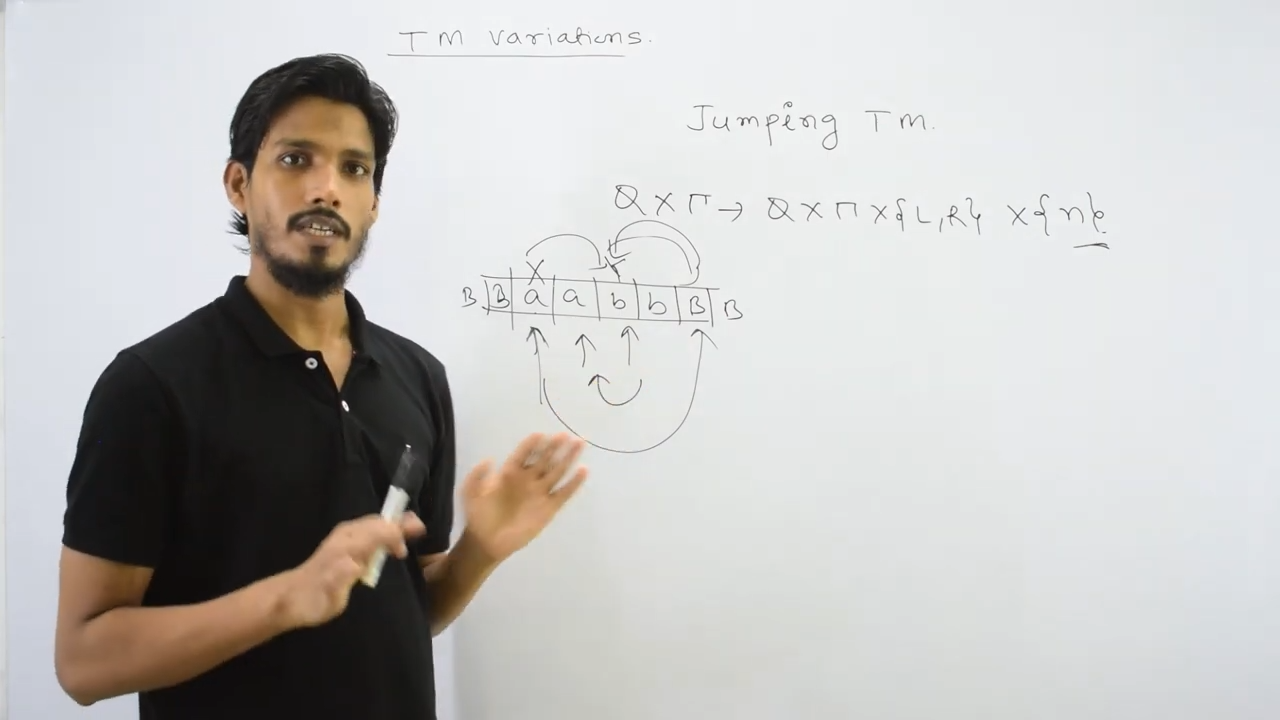 TM Variations.
Jumping TM.
Q X Γ → Q X Γ X {L,R} X {n}
X Y
B B a a b b B B